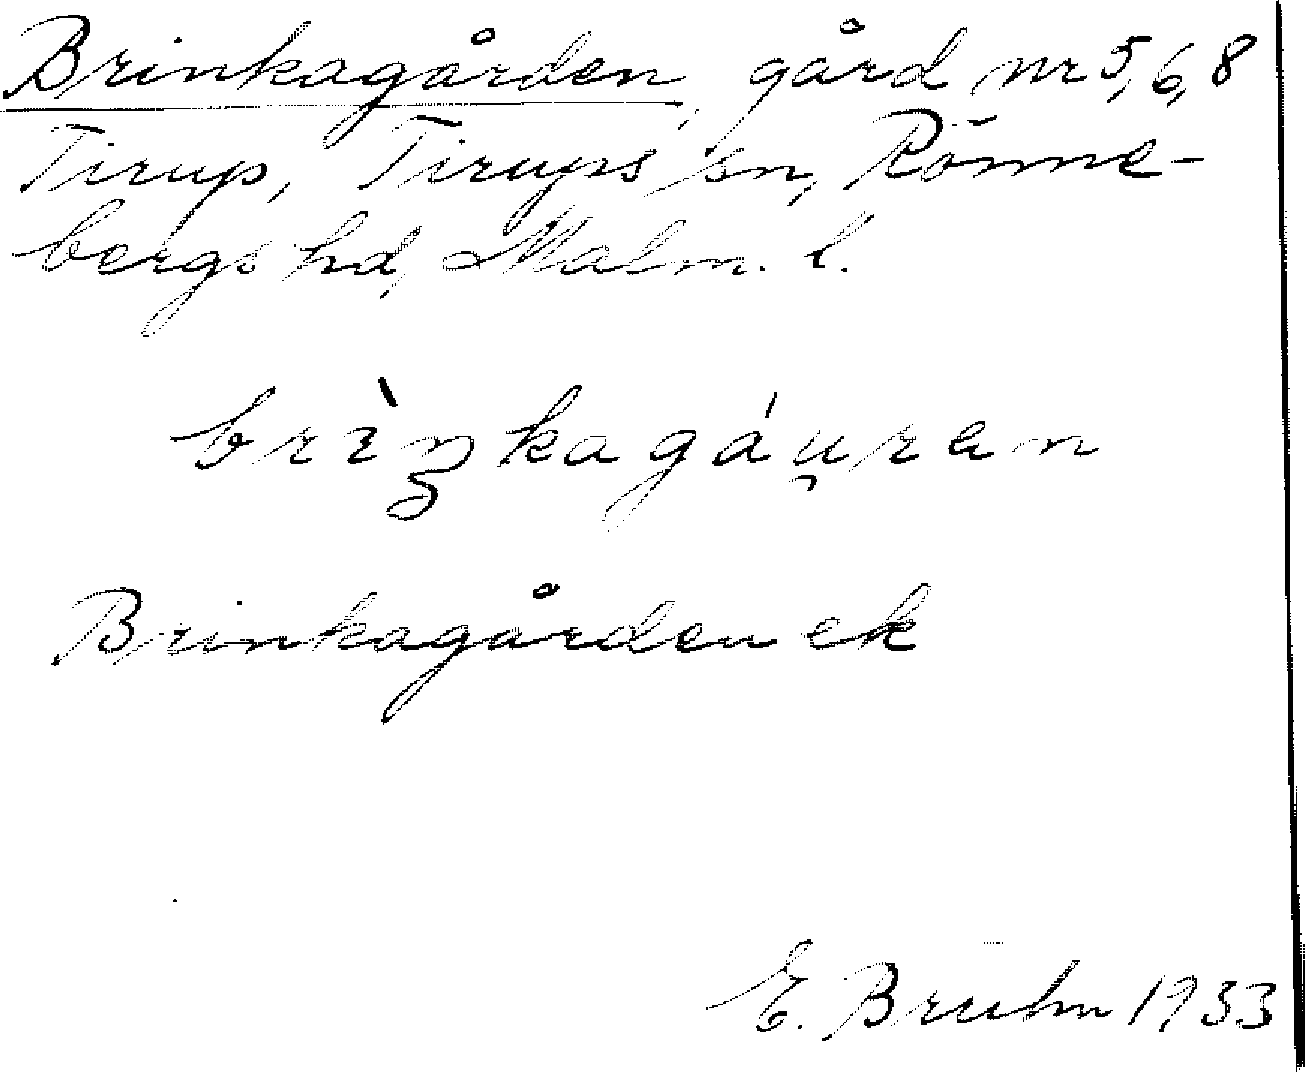 Brinkagården, gård nr 5,6,8
Tirup, Tirups sn, Rönne-
bergs hd, Malm. l.
brìŋkagáu̯ran
Brinkagården ek
E. Bruhn 1933